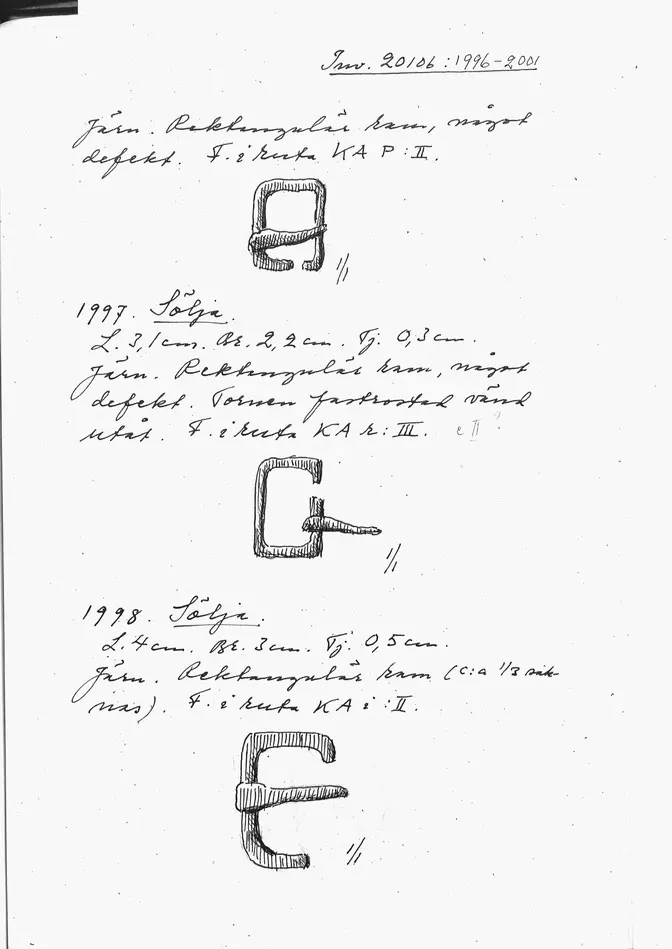 Inv. 20106:1996-2001
Järn. Rektangulär ram, något
defekt. F. i ruta KA P:II.
1/1
1997. Sölja.
L. 3,1 cm. Br. 2,2 cm. Tj. 0,3 cm.
Järn. Rektangulär ram, något
defekt. Tornen fastrostad vänd
utåt. F. i ruta KA r:III. e II ?
1/1
1998. Sölja.
L. 4 cm. Br. 3 cm. Tj. 0,5 cm.
Järn. Rektangulär ram (c:a 1/3 sak-
nas). F. i ruta KA i:II.
1/1